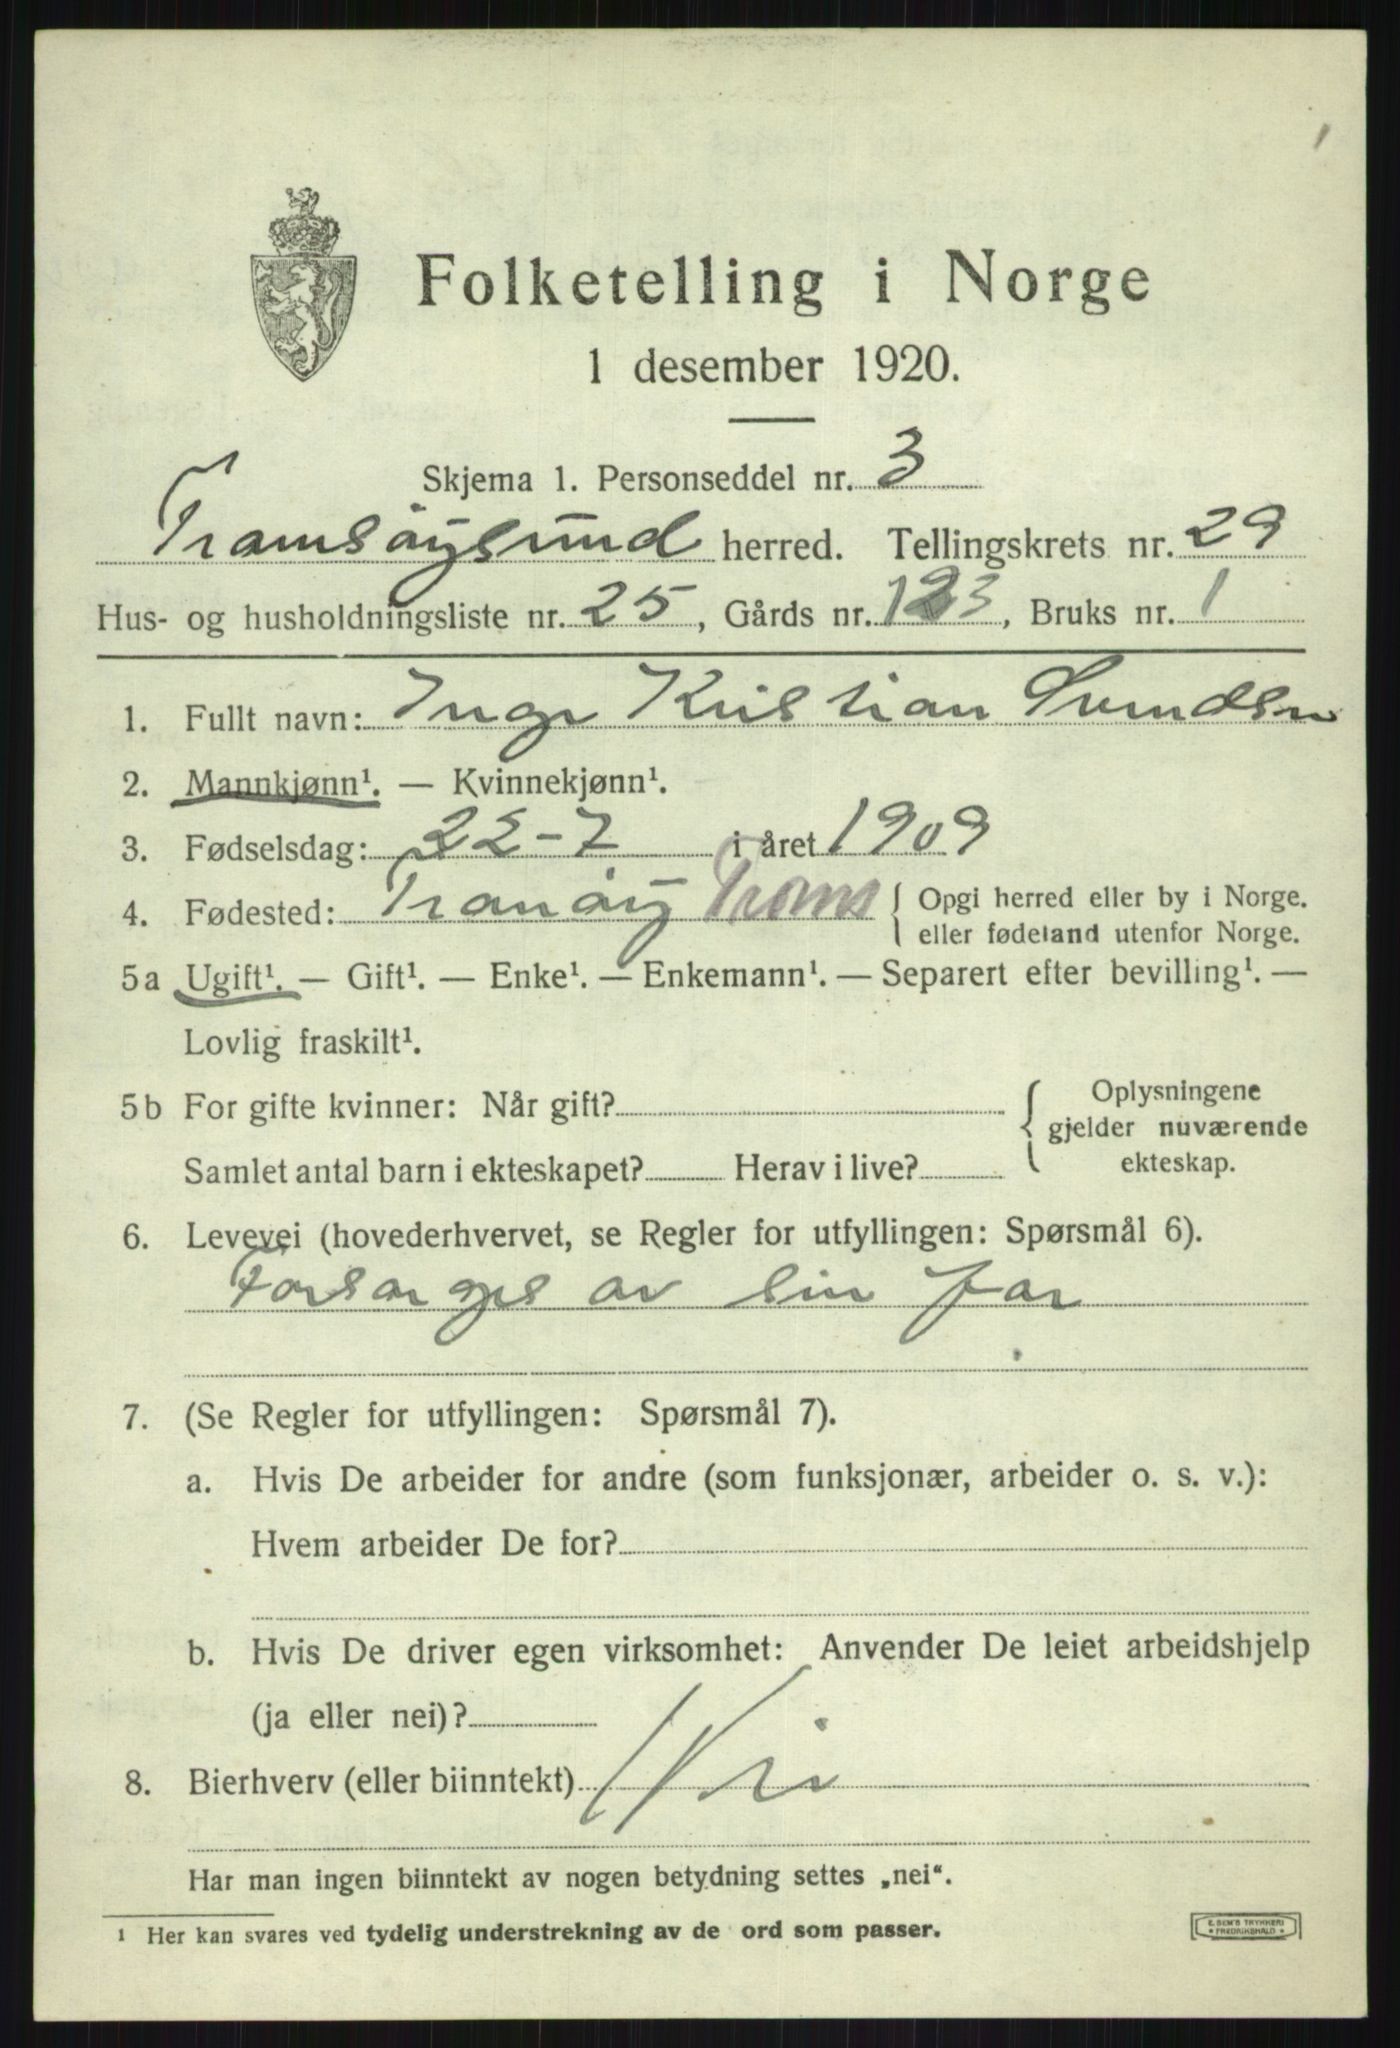 Folketelling i Norge
1 desember 1920.
Skjema 1. Personseddel nr. 3
Tromsøysund herred. Tellingskrets nr. 29
Hus- og husholdningsliste nr. 25, Gårds nr. 123, Bruks nr. 1
1. Fullt navn: Inge Kristian Svendsen
2. Mannkjønn¹. — Kvinnekjønn¹.
3. Fødselsdag: 22-7 i året 1909
4. Fødested: Tranøy Troms { Opgi herred eller by i Norge.
eller fødeland utenfor Norge.
5a Ugift¹. — Gift¹. — Enke¹. — Enkemann¹. — Separert efter bevilling¹. —
Lovlig fraskilt¹.
5b For gifte kvinner: Når gift? { Oplysningene
gjelder nuværende
Samlet antal barn i ekteskapet? Herav i live? ekteskap.
6. Levevei (hovederhvervet, se Regler for utfyllingen: Spørsmål 6).
Forsørges av sin far
7. (Se Regler for utfyllingen: Spørsmål 7).
a. Hvis De arbeider for andre (som funksjonær, arbeider o. s. v.):
Hvem arbeider De for?
b. Hvis De driver egen virksomhet: Anvender De leiet arbeidshjelp
(ja eller nei)?
8. Bierhverv (eller biinntekt) Nei
Har man ingen biinntekt av nogen betydning settes „nei“.
¹ Her kan svares ved tydelig understrekning av de ord som passer.
E. SEM'S TRYKKERI
FREDRIKSHALD